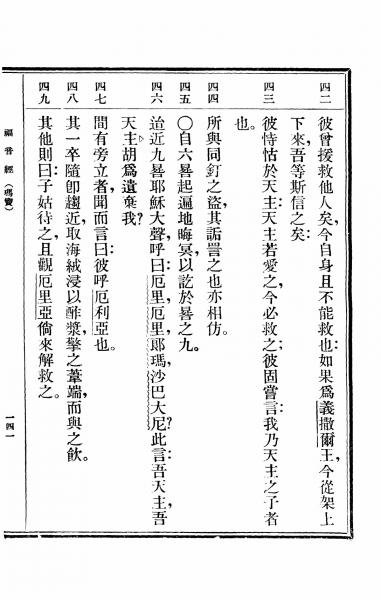 四二 彼曾援救他人矣,今自身且不能救也:如果爲義撒爾王,今從架上
下來,吾等斯信之矣:
四三 彼恃怙於天主:天主若愛之,今必救之;彼固嘗言:我乃天主之子者
也。
四四 所與同釘之盜,其詬詈之也亦相仿。
四五 〇自六晷起,遍地晦冥,以訖於晷之九。
四六 迨近九晷,耶穌大聲呼曰:厄里,厄里,郞瑪,沙巴大尼?此言:吾天主,吾
天主,胡爲遺棄我?
四七 間有旁立者,聞而言曰:彼呼厄利亞也。
四八 其一卒隨卽趨近,取海絨浸以酢漿,擎之葦端,而與之飮。
四九 其他則曰:子姑待之,且觀厄里亞倘來解救之。
福音經(瑪竇) 一四一